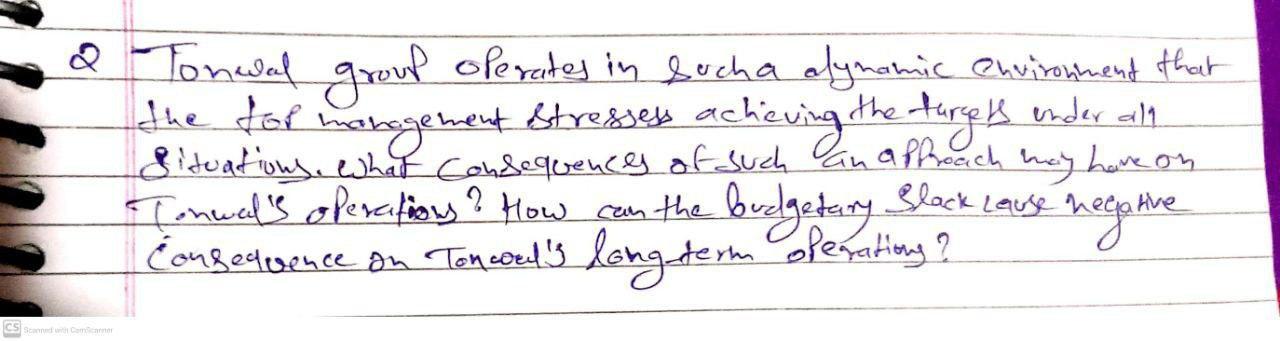 Q Tonwal group operates in such a dynamic environment that
the top management stresses achieving the targets under all
situations. What consequences of such an approach may have on
Tonwal's operations? How can the budgetary slack cause negative
consequence on Tonwal's long-term operations?
CS Scanned with CamScanner